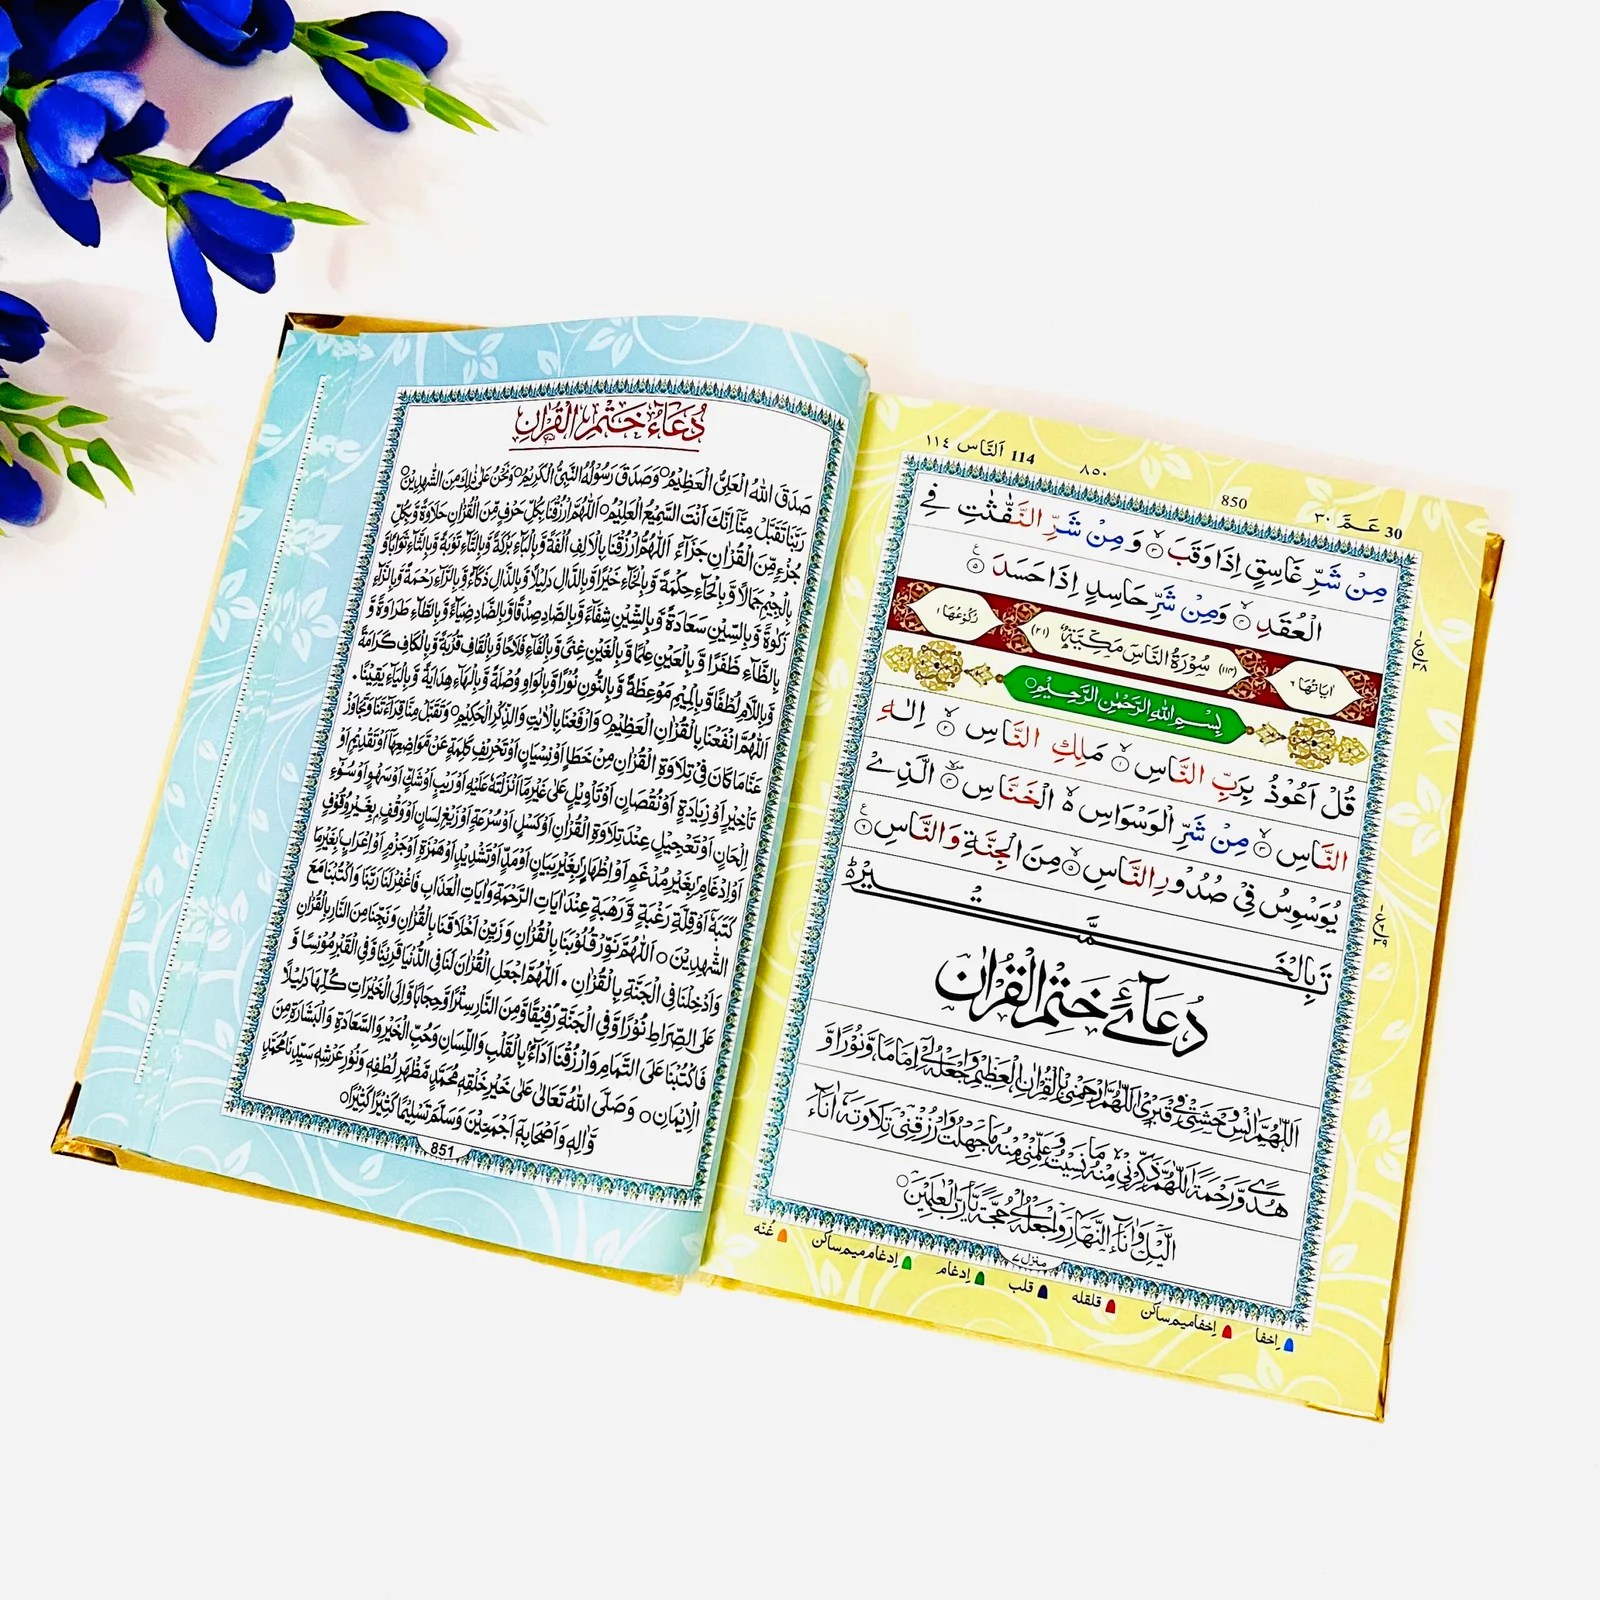 30 عَمَّ ٣٠
850
٨٥٠
114 اَلنَّاس ١١٤
مِنْ شَرِّ غَاسِقٍ اِذَا وَقَبَ ۙ‏﴿۳﴾ وَمِنْ شَرِّ النَّفّٰثٰتِ فِی
الْعُقَدِ ۙ‏﴿۴﴾ وَمِنْ شَرِّ حَاسِدٍ اِذَا حَسَدَ ﴿۵﴾
اٰيَاتُهَا ٦ (١١٤) سُوْرَةُ النَّاسِ مَكِّيَّةٌ (٢١) رُكُوْعُهَا ١
بِسْمِ اللّٰهِ الرَّحْمٰنِ الرَّحِيْمِ
قُلْ اَعُوْذُ بِرَبِّ النَّاسِ ۙ‏﴿۱﴾ مَلِكِ النَّاسِ ۙ‏﴿۲﴾ اِلٰهِ
النَّاسِ ۙ‏﴿۳﴾ مِنْ شَرِّ الْوَسْوَاسِ ۵ الْخَنَّاسِ ﴿۴﴾ الَّذِیْ
يُوَسْوِسُ فِیْ صُدُوْرِ النَّاسِ ۙ‏﴿۵﴾ مِنَ الْجِنَّةِ وَالنَّاسِ ﴿۶﴾
تَمَّتْ بِالْخَيْرِ
دُعَآئے خَتْمُ الْقُرْاٰن
اَللّٰهُمَّ اٰنِسْ وَحْشَتِیْ فِیْ قَبْرِیْ اَللّٰهُمَّ ارْحَمْنِیْ بِالْقُرْاٰنِ الْعَظِيْمِ وَاجْعَلْهُ لِیْ اِمَامًا وَّنُوْرًا وَّ
هُدًی وَّرَحْمَةً اَللّٰهُمَّ ذَكِّرْنِیْ مِنْهُ مَا نَسِيْتُ وَعَلِّمْنِیْ مِنْهُ مَا جَهِلْتُ وَارْزُقْنِیْ تِلَاوَتَهٗ اٰنَآءَ
الَّيْلِ وَاٰنَآءَ النَّهَارِ وَاجْعَلْهُ لِیْ حُجَّةً يَّا رَبَّ الْعٰلَمِيْنَ
منزل ٧
اِخفا اِخفا میم ساکن قلقله قلب اِدغام اِدغام میم ساکن غُنّه
دُعَاءُ خَتْمِ الْقُرْاٰنِ
صَدَقَ اللّٰهُ الْعَلِیُّ الْعَظِيْمُ وَصَدَقَ رَسُوْلُهُ النَّبِیُّ الْكَرِيْمُ وَنَحْنُ عَلٰی ذٰلِكَ مِنَ الشّٰهِدِيْنَ
رَبَّنَا تَقَبَّلْ مِنَّا اِنَّكَ اَنْتَ السَّمِيْعُ الْعَلِيْمُ اَللّٰهُمَّ ارْزُقْنَا بِكُلِّ حَرْفٍ مِّنَ الْقُرْاٰنِ حَلَاوَةً وَّبِكُلِّ
جُزْءٍ مِّنَ الْقُرْاٰنِ جَزَآءً اَللّٰهُمَّ ارْزُقْنَا بِالْاَلِفِ اُلْفَةً وَّبِالْبَآءِ بَرَكَةً وَّبِالتَّآءِ تَوْبَةً وَّبِالثَّآءِ ثَوَابًا وَّ
بِالْجِيْمِ جَمَالًا وَّبِالْحَآءِ حِكْمَةً وَّبِالْخَآءِ خَيْرًا وَّبِالدَّالِ دَلِيْلًا وَّبِالذَّالِ ذَكَآءً وَّبِالرَّآءِ رَحْمَةً وَّبِالزَّآءِ
زَكٰوةً وَّبِالسِّيْنِ سَعَادَةً وَّبِالشِّيْنِ شِفَآءً وَّبِالصَّادِ صِدْقًا وَّبِالضَّادِ ضِيَآءً وَّبِالطَّآءِ طَرَاوَةً وَّ
بِالظَّآءِ ظَفَرًا وَّبِالْعَيْنِ عِلْمًا وَّبِالْغَيْنِ غِنًی وَّبِالْفَآءِ فَلَاحًا وَّبِالْقَافِ قُرْبَةً وَّبِالْكَافِ كَرَامَةً
وَّبِاللَّامِ لُطْفًا وَّبِالْمِيْمِ مَوْعِظَةً وَّبِالنُّوْنِ نُوْرًا وَّبِالْوَاوِ وُصْلَةً وَّبِالْهَآءِ هِدَايَةً وَّبِالْيَآءِ يَقِيْنًا
اَللّٰهُمَّ انْفَعْنَا بِالْقُرْاٰنِ الْعَظِيْمِ وَارْفَعْنَا بِالْاٰيٰتِ وَالذِّكْرِ الْحَكِيْمِ وَتَقَبَّلْ مِنَّا قِرَآءَتَنَا وَتَجَاوَزْ
عَنَّا مَا كَانَ فِیْ تِلَاوَةِ الْقُرْاٰنِ مِنْ خَطَاءٍ اَوْ نِسْيَانٍ اَوْ تَحْرِيْفِ كَلِمَةٍ عَنْ مَّوَاضِعِهَا اَوْ تَقْدِيْمٍ اَوْ
تَاْخِيْرٍ اَوْ زِيَادَةٍ اَوْ نُقْصَانٍ اَوْ تَاْوِيْلٍ عَلٰی غَيْرِ مَا اَنْزَلْتَهٗ عَلَيْهِ اَوْ رَيْبٍ اَوْ شَكٍّ اَوْ سَهْوٍ اَوْ سُوْٓءِ
اِلْحَانٍ اَوْ تَعْجِيْلٍ عِنْدَ تِلَاوَةِ الْقُرْاٰنِ اَوْ كَسَلٍ اَوْ سُرْعَةٍ اَوْ زَيْغِ لِسَانٍ اَوْ وَقْفٍ بِغَيْرِ وُقُوْفٍ
اَوْ اِدْغَامٍ بِغَيْرِ مُدْغَمٍ اَوْ اِظْهَارٍ بِغَيْرِ بَيَانٍ اَوْ مَدٍّ اَوْ تَشْدِيْدٍ اَوْ هَمْزَةٍ اَوْ جَزْمٍ اَوْ اِعْرَابٍ بِغَيْرِ مَا
كَتَبَهٗ اَوْ قِلَّةِ رَغْبَةٍ وَّرَهْبَةٍ عِنْدَ اٰيَاتِ الرَّحْمَةِ وَاٰيَاتِ الْعَذَابِ فَاغْفِرْ لَنَا رَبَّنَا وَاكْتُبْنَا مَعَ
الشّٰهِدِيْنَ اَللّٰهُمَّ نَوِّرْ قُلُوْبَنَا بِالْقُرْاٰنِ وَزَيِّنْ اَخْلَاقَنَا بِالْقُرْاٰنِ وَنَجِّنَا مِنَ النَّارِ بِالْقُرْاٰنِ
وَاَدْخِلْنَا فِی الْجَنَّةِ بِالْقُرْاٰنِ اَللّٰهُمَّ اجْعَلِ الْقُرْاٰنَ لَنَا فِی الدُّنْيَا قَرِيْنًا وَّفِی الْقَبْرِ مُوْنِسًا وَّ
عَلَی الصِّرَاطِ نُوْرًا وَّفِی الْجَنَّةِ رَفِيْقًا وَّمِنَ النَّارِ سِتْرًا وَّحِجَابًا وَّاِلَی الْخَيْرَاتِ كُلِّهَا دَلِيْلًا
فَاكْتُبْنَا عَلَی التَّمَامِ وَارْزُقْنَا اَدَآءً بِالْقَلْبِ وَاللِّسَانِ وَحُبِّ الْخَيْرِ وَالسَّعَادَةِ وَالْبَشَارَةِ مِنَ
الْاِيْمَانِ وَصَلَّی اللّٰهُ تَعَالٰی عَلٰی خَيْرِ خَلْقِهٖ مُحَمَّدٍ مَّظْهَرِ لُطْفِهٖ وَنُوْرِ عَرْشِهٖ سَيِّدِنَا مُحَمَّدٍ
وَّاٰلِهٖ وَاَصْحَابِهٖ اَجْمَعِيْنَ وَسَلَّمَ تَسْلِيْمًا كَثِيْرًا كَثِيْرًا
851